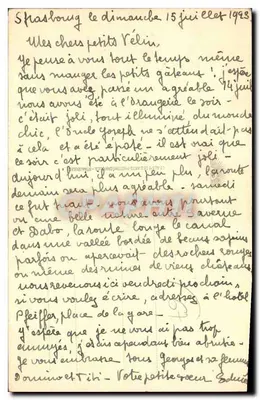 Strasbourg le dimanche 15 juillet 1923
Mes chers petits Vélin
Je pense à vous tout le temps même
sans manger les petits gâteaux ! j'espère
que vous avez passé un agréable 14 juillet
nous avons été à l'Orangerie le soir -
c'était joli, tout illuminé du monde
chic, l'oncle Joseph ne s'attendait pas
à cela et a été épaté - il est vrai que
le soir c'est particulièrement joli -
aujourd'hui, il a un peu plu, la route
demain sera plus agréable - samedi
ce fut pourtant
vu une belle nature entre Saverne
et Dabo, la route longe le canal
dans une vallée bordée de beaux sapins
parfois on apercevait des roches rouges
ou même des ruines de vieux châteaux
nous revenons ici vendredi prochain,
si vous voulez écrire, adressez à l'hôtel
Pfeiffer, place de la gare -
j'espère que je ne vous ai pas trop
ennuyés, j'étais cependant bien abrutie -
je vous embrasse tous Georges et sa femme
Domino et Titi - Votre petite soeur